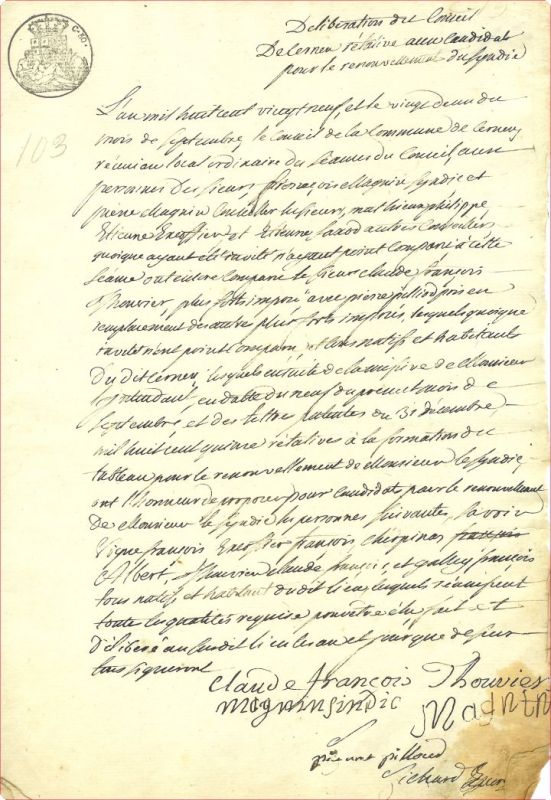 C. 80.
103
Déliberation du Conseil
De Cernex rélative aux Candidats
pour le renouvellement du Syndic
L'an mil huit cent vingt neuf, et le vingt deux du
mois de septembre, le Conseil de la Commune de Cernex
réuni au local ordinaire des séances du Conseil, aux
personnes des sieurs françois Magnin Syndic et
pierre Magnin Conseiller les sieurs, mathieu philippe
Etienne Excoffier et Etienne Saxod autres Conseillers
quoique ayant étés invités n'ayant point Comparu à cette
séance ont en outre Comparu le sieur claude françois
Thouvier, plus forts imposé avec pierre pilliod pris en
remplacement des autres plus forts imposés, lesquels quoique
invités n'ont point Comparu, et tous natifs et habitants
Du dit Cernex, lesquels ensuite de la missive de Monsieur
l'Intendant, en datte du neuf du présent mois de
septembre, et des lettres patentes du 31 décembre,
mil huit cent quinze rélatives à la formation du
tableau pour le renouvellement de Monsieur le Syndic,
ont l'honneur de proposer pour candidats pour le renouvellement
De Monsieur le Syndic les personnes suivantes, savoir
françois Excoffier françois françois
Albert, Thouvier claude françois, et galley françois
tous natifs et habitant du dit lieu, lesquels réunissent
toute les qualités requise pour être élu fait et
Délibéré au susdit lieu les an et jour que dessus
tous signeront
Claude françois Thouvier
magnin sindic Magnin
pilliod
Richard